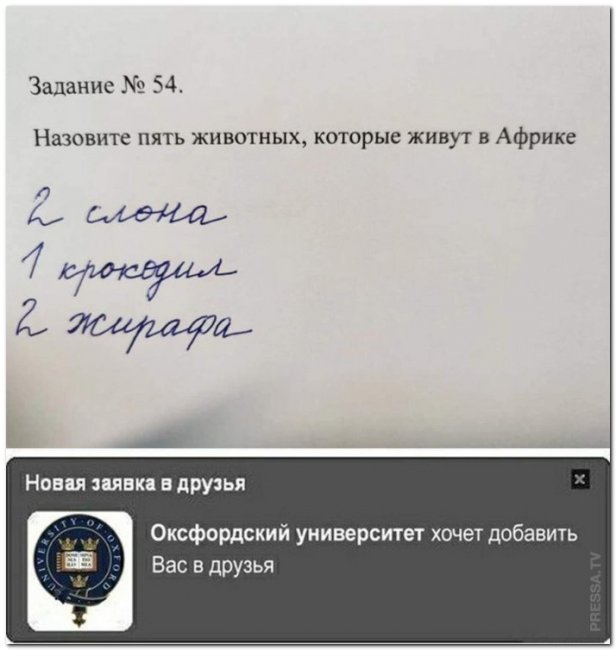 Задание № 54.
Назовите пять животных, которые живут в Африке
2 слона
1 крокодил
2 жирафа
Новая заявка в друзья
Оксфордский университет хочет добавить
Вас в друзья
UNIVERSITY OF OXFORD
PRESSA.TV